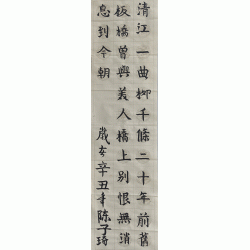 清江一曲柳千條二十年前舊
板橋曾與美人橋上別恨無消
息到今朝
歲在辛丑年陳子琦